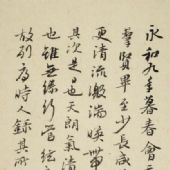 永和九年暮春會
羣賢畢至少長咸
清流激湍暎帶
其次是也天朗氣清
也雖無絲竹管弦
故列時人錄其所